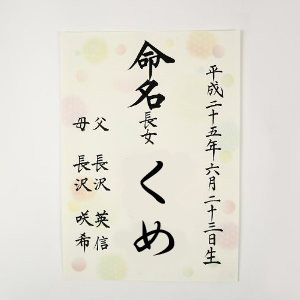 平成二十五年六月二十三日生
命名
長女
くめ
父 長沢 英信
母 長沢 咲希